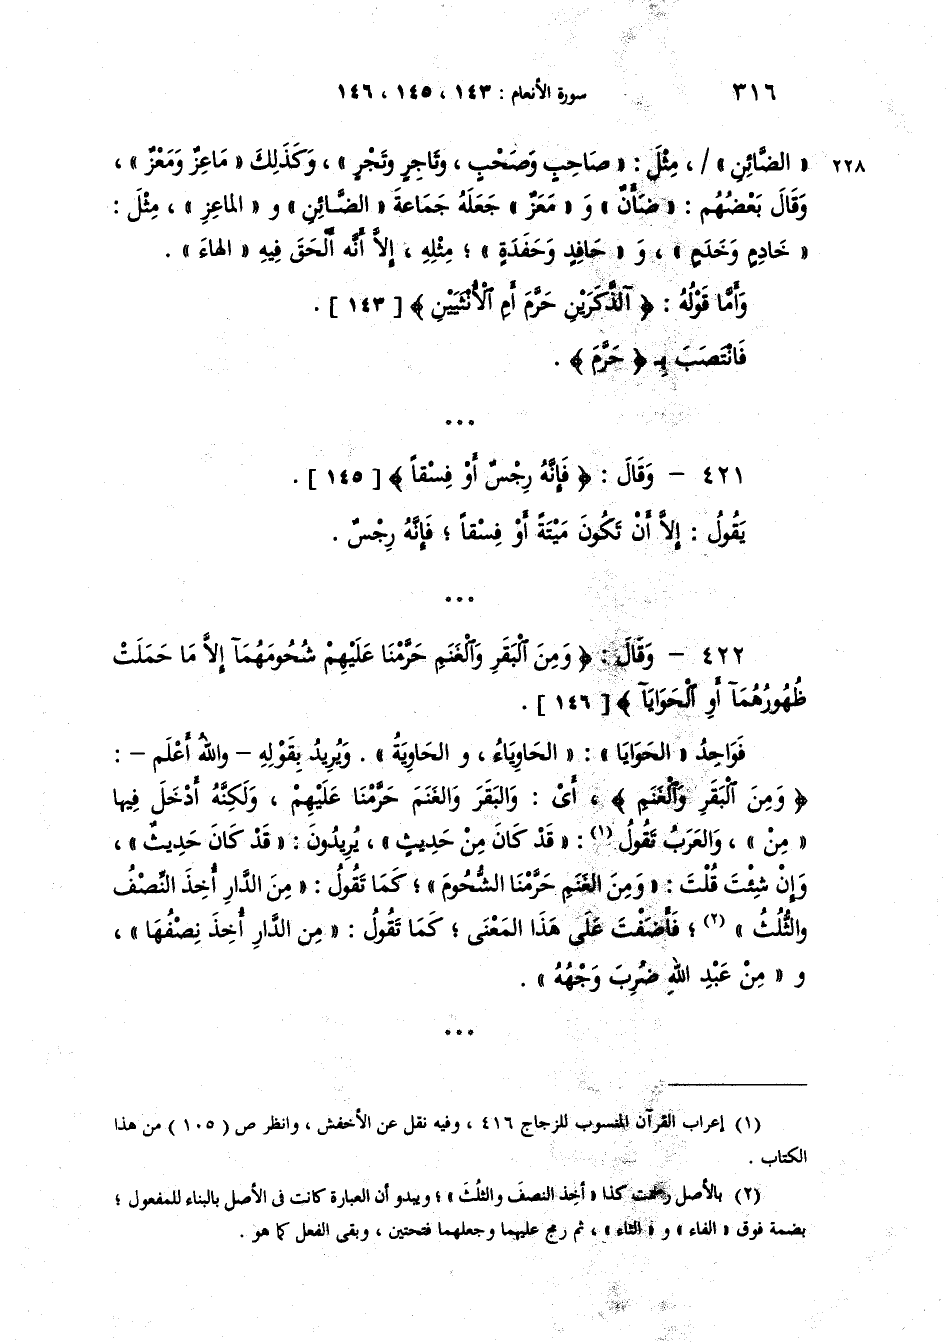 ٣١٦ سورة الأنعام : ١٤٣ ، ١٤٥ ، ١٤٦
٢٢٨ « الضَّائِنِ » / ، مِثْلَ : « صَاحِبٍ وَصَحْبٍ ، وتَاجِرٍ وتَجْرٍ » ، وَكَذَلِكَ « مَاعِزٌ وَمَعْزٌ » ،
وَقَالَ بَعْضُهُم : « ضَأَنٌ » وَ « مَعَزٌ » جَعَلَهُ جَمَاعةَ « الضَّـائِنِ » و « الماعِزِ » ، مِثْلَ :
« خَادِمٍ وَخَدَمٍ » ، وَ « حَافِدٍ وَحَفَدَةٍ » ؛ مِثْلِهِ ، إلاَّ أَنَّه أَلْحَقَ فِيهِ « الهاءَ » .
وَأَمَّا قَوْلُهُ : ﴿ ءَآلذَّكَرَيْنِ حَرَّمَ أَمِ ٱلْأُنْثَيَيْنِ ﴾ [ ١٤٣ ] .
فَانْتَصَبَ بِـ ﴿ حَرَّمَ ﴾ .
•••
٤٢١ – وَقَالَ : ﴿ فَإِنَّهُ رِجْسٌ أَوْ فِسْقاً ﴾ [ ١٤٥ ] .
يَقُولُ : إلاَّ أَنْ تَكُونَ مَيْتَةً أَوْ فِسْقاً ؛ فَإِنَّهُ رِجْسٌ .
•••
٤٢٢ – وَقَالَ : ﴿ وَمِنَ ٱلْبَقَرِ وَٱلْغَنَمِ حَرَّمْنَا عَلَيْهِمْ شُحُومَهُمَآ إلاَّ مَا حَمَلَتْ
ظُهُورُهُمَآ أَوِ ٱلْحَوَايَآ ﴾ [ ١٤٦ ] .
فَوَاحِدُ « الحَوَايَا » : « الحَاوِيَاءُ ، و الحَاوِيَةُ » . وَيُرِيدُ بِقَوْلِهِ – واللهُ أَعْلَم – :
﴿ وَمِنَ ٱلْبَقَرِ وَٱلْغَنَمِ ﴾ ، أَىْ : وَالبَقَرَ وَالغَنَمَ حَرَّمْنَا عَلَيْهِمْ ، وَلَكِنَّهُ أَدْخَلَ فِيها
« مِنْ » ، وَالعَرَبُ تَقُولُ (١) : « قَدْ كَانَ مِنْ حَدِيثٍ » ، يُرِيدُونَ : « قَدْ كَانَ حَدِيثٌ » ،
وَإِنْ شِئْتَ قُلْتَ : « وَمِنَ الغَنَمِ حَرَّمْنَا الشُّحُومَ » ؛ كَمَا تَقُولُ : « مِنَ الدَّارِ أُخِذَ النِّصْفُ
والثُّلُثُ » (٢) ؛ فَأَضَفْتَ عَلَى هَذَا المَعْنَى ؛ كَمَا تَقُولُ : « مِن الدَّارِ أُخِذَ نِصْفُهَا » ،
و « مِنْ عَبْدِ اللهِ ضُرِبَ وَجْهُهُ » .
•••
(١) إعراب القرآن المنسوب للزجاج ٤١٦ ، وفيه نقل عن الأخفش ، وانظر ص ( ١٠٥ ) من هذا
الكتاب .
(٢) بالأصل رسمت كذا « أخِذ النصفَ والثلُثَ » ؛ ويبدو أن العبارة كانت فى الأصل بالبناء للمفعول ؛
بضمة فوق « الفاء » و « الثاء » ، ثم رمج عليهما وجعلهما فتحتين ، وبقى الفعل كما هو .